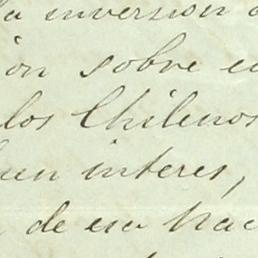 la inversion
ion sobre
los Chilenos
uen interes,
de esa nac